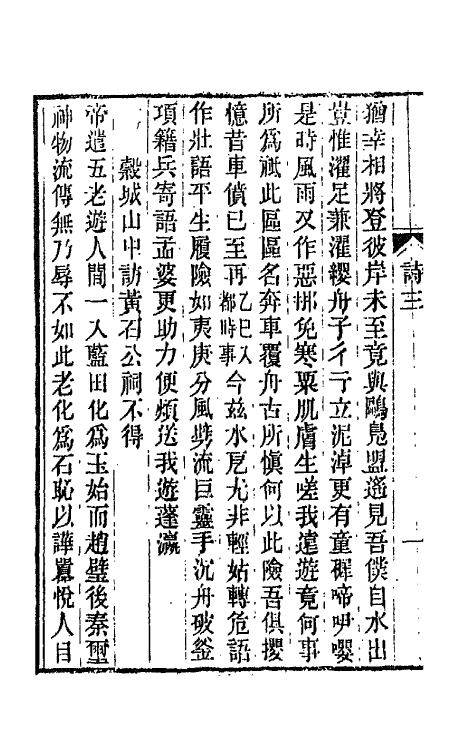 詩三
一
猶幸相將登彼岸未至竟與鷗鳧盟遙見吾僕自水出
豈惟濯足兼濯纓舟子彳亍立泥淖更有童穉啼咿嚶
是時風雨又作惡那免寒粟肌膚生嗟我遠遊竟何事
所為祗此區區名奔車覆舟古所慎何以此險吾俱攖
憶昔車僨已至再乙巳入都時事今茲水戹尤非輕姑轉危語
作壯語平生履險如夷庚分風擘流巨靈手沉舟破釜
項籍兵寄語孟婆更助力便煩送我遊蓬瀛
穀城山中訪黃石公祠不得
帝遣五老遊人間一入藍田化為玉始而趙璧後秦璽
神物流傳無乃辱不如此老化為石恥以譁囂悅人目